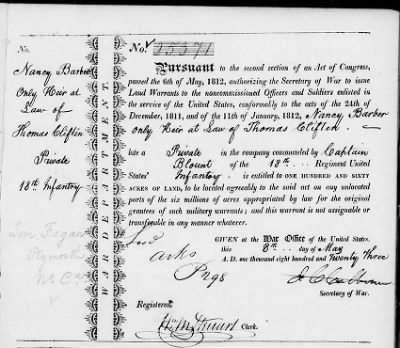 No.
Nancy Barber
Only Heir at
Law of
Thomas Clifton
Private
18th Infantry
Levi Fagan
Plymouth
N. Ca
WAR DEPARTMENT.
No. 25371
Pursuant to the second section of an Act of Congress,
passed the 6th of May, 1812, authorizing the Secretary of War to issue
Land Warrants to the noncommissioned Officers and Soldiers enlisted in
the service of the United States, conformably to the acts of the 24th of
December, 1811, and of the 11th of January, 1812, Nancy Barber
only Heir at Law of Thomas Clifton
late a Private in the company commanded by Captain
Blount of the 18th Regiment United
States' Infantry is entitled to ONE HUNDRED AND SIXTY
ACRES OF LAND, to be located agreeably to the said act on any unlocated
parts of the six millions of acres appropriated by law for the original
grantees of such military warrants; and this warrant is not assignable or
transferable in any manner whatever.
GIVEN at the War Office of the United States,
this 8th day of May
A. D. one thousand eight hundred and Twenty Three
Arks
P 298
J C Calhoun
Secretary of War.
Registered
Clerk.